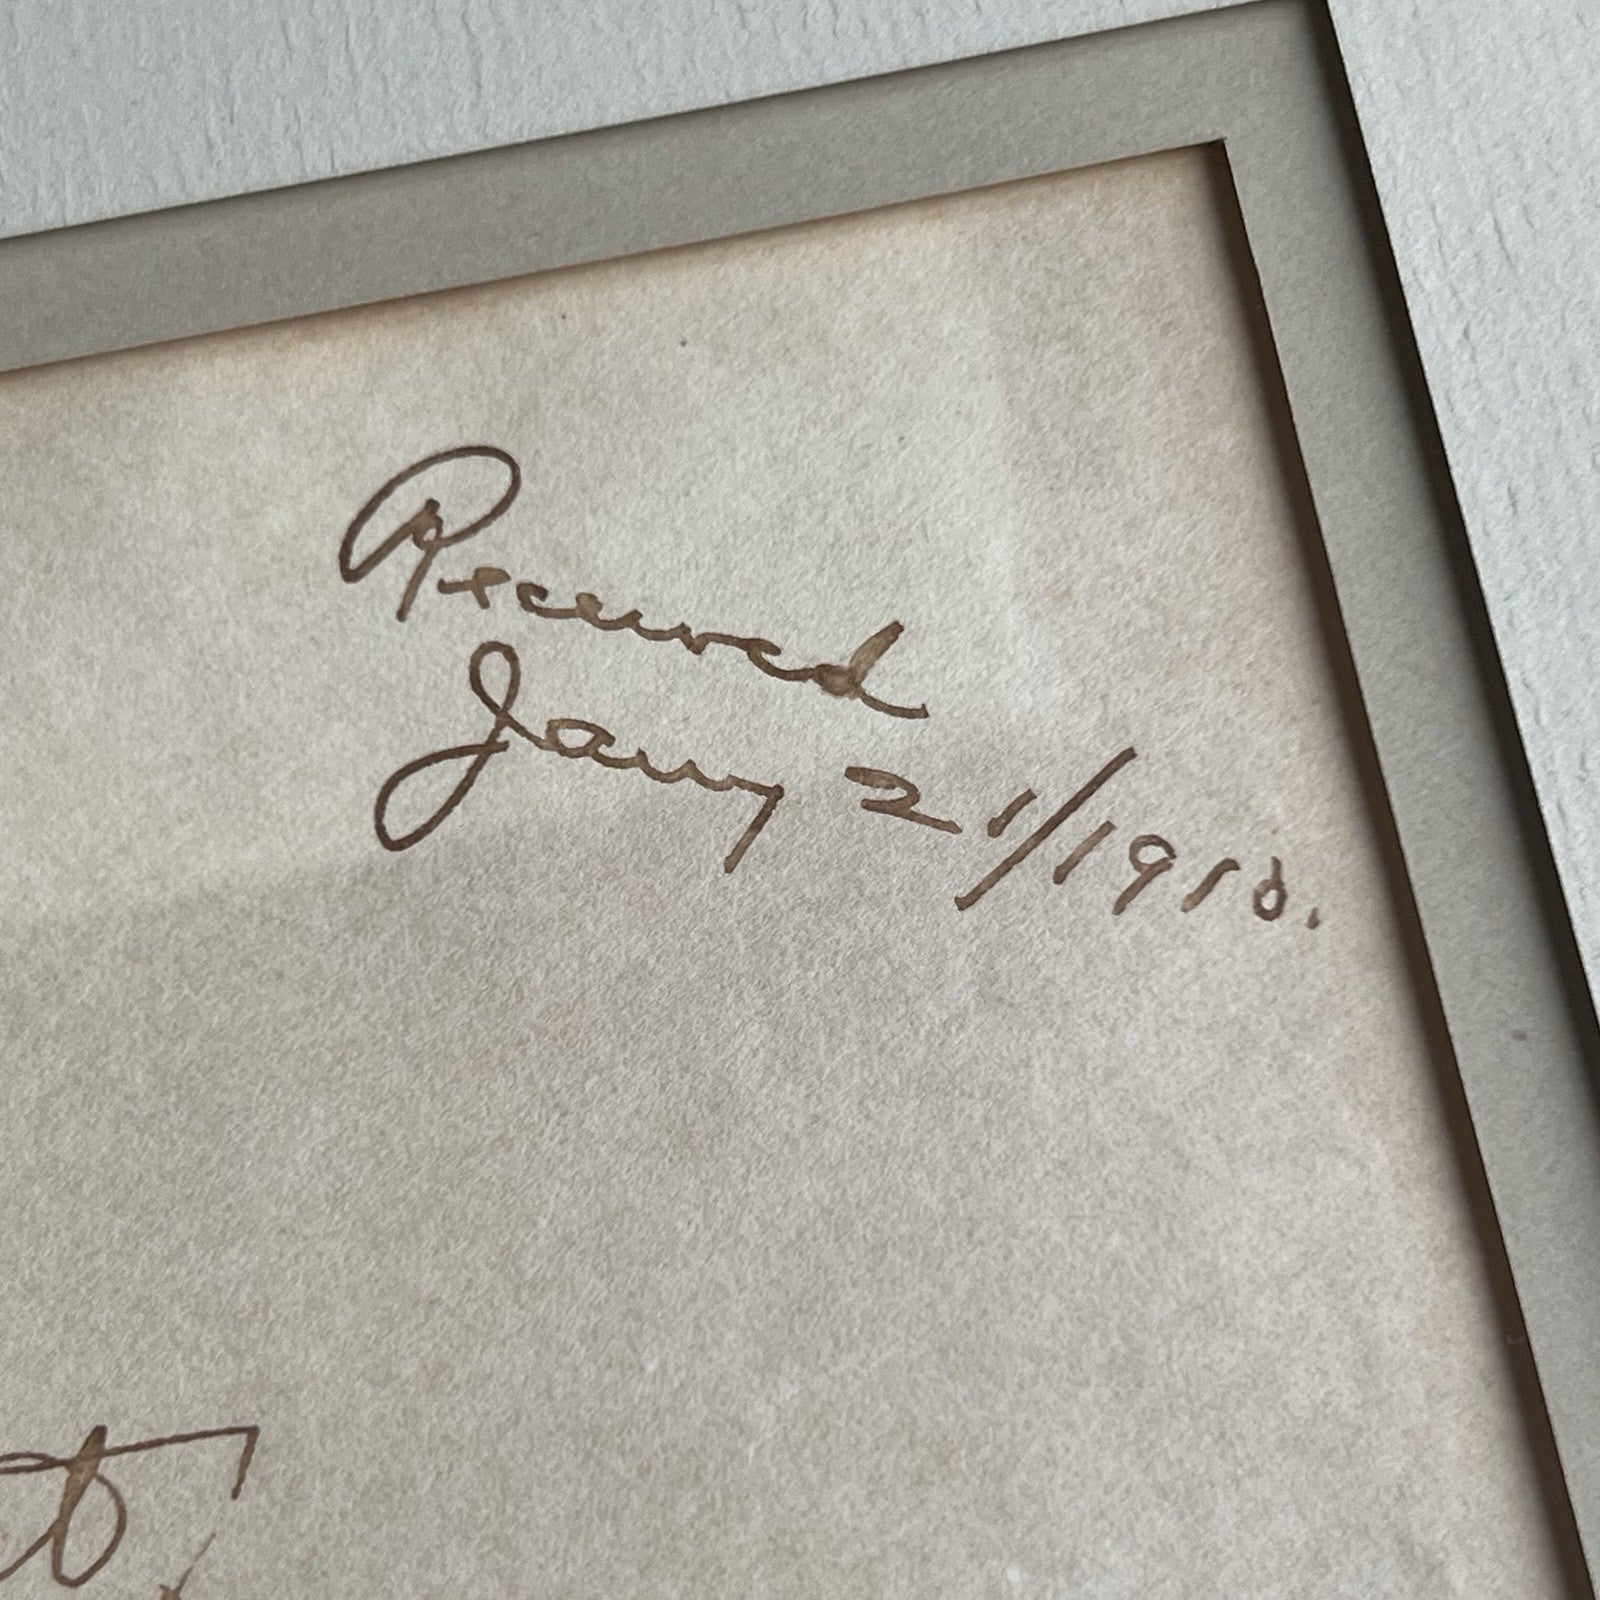 Received
Jany 21/1910.